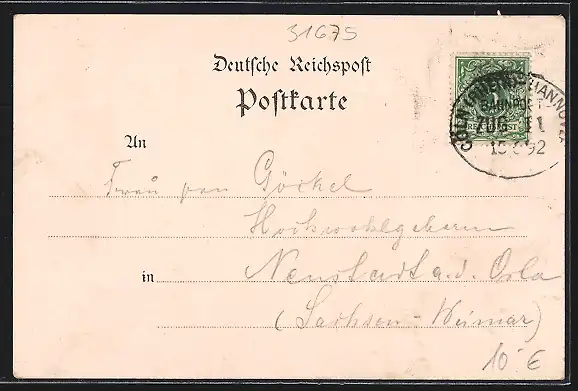 31675
Deutsche Reichspost
Postkarte
An
Frau von Göckel
Hochwohlgeboren
in Neustadt a. d. Orla
(Sachsen-Weimar)
10 €
BAHNPOST
ZUG 11